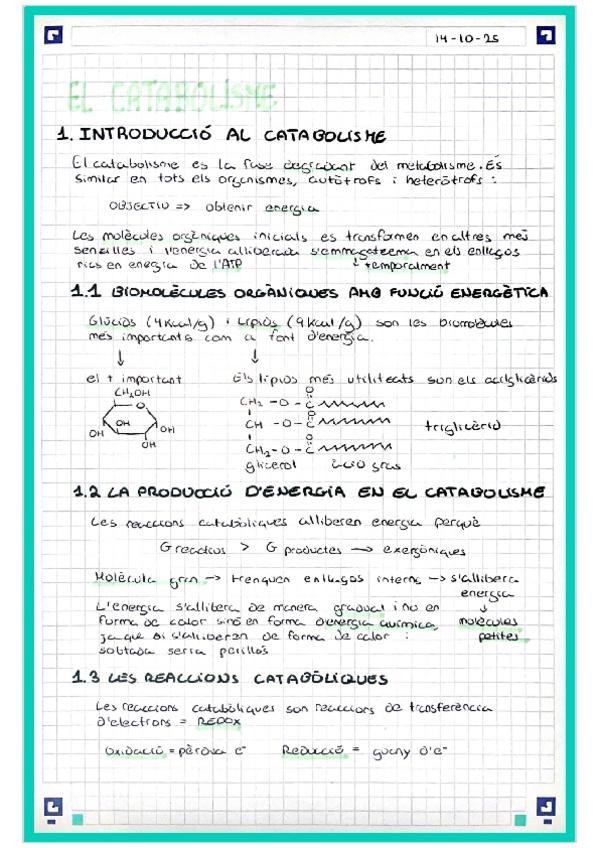 14-10-25
EL CATABOLISME
1. INTRODUCCIÓ AL CATABOLISME
El catabolisme es la fase degradant del metabolisme. És
similar en tots els organismes, autòtrofs i heteròtrofs :
OBJECTIU => obtenir energia
Les molècules orgàniques inicials es transformen en altres més
senzilles i l'energia alliberada s'emmagatzema en els enllaços
rics en energia de l'ATP
↳ temporalment
1.1 BIOMOLÈCULES ORGÀNIQUES AMB FUNCIÓ ENERGÈTICA
Glúcids (4Kcal/g) i Lípids (9Kcal/g) son les biomolècules
més importants com a font d'energia.
↓ ↓
el + important Els lípids més utilitzats son els acilglicèrids
CH₂OH
O
OH OH OH
OH
O
CH₂ - O - C
O
CH - O - C
triglicèrid
O
CH₂ - O - C
glicerol
1.2 LA PRODUCCIÓ D'ENERGIA EN EL CATABOLISME
Les reaccions catabòliques alliberen energia perquè
G reactius > G productes → exergòniques
Molècula gran → trenquen enllaços interns → s'allibera
energia
↓
molècules
petites
L'energia s'allibera de manera gradual i no en
forma de calor sinó en forma d'energia química,
ja que si s'alliberen de forma de calor :
sobtada seria perillós
1.3 LES REACCIONS CATABÒLIQUES
Les reaccions catabòliques son reaccions de transferència
d'electrons = REDOX
Oxidació = pèrdua e⁻ Reducció = guany d'e⁻